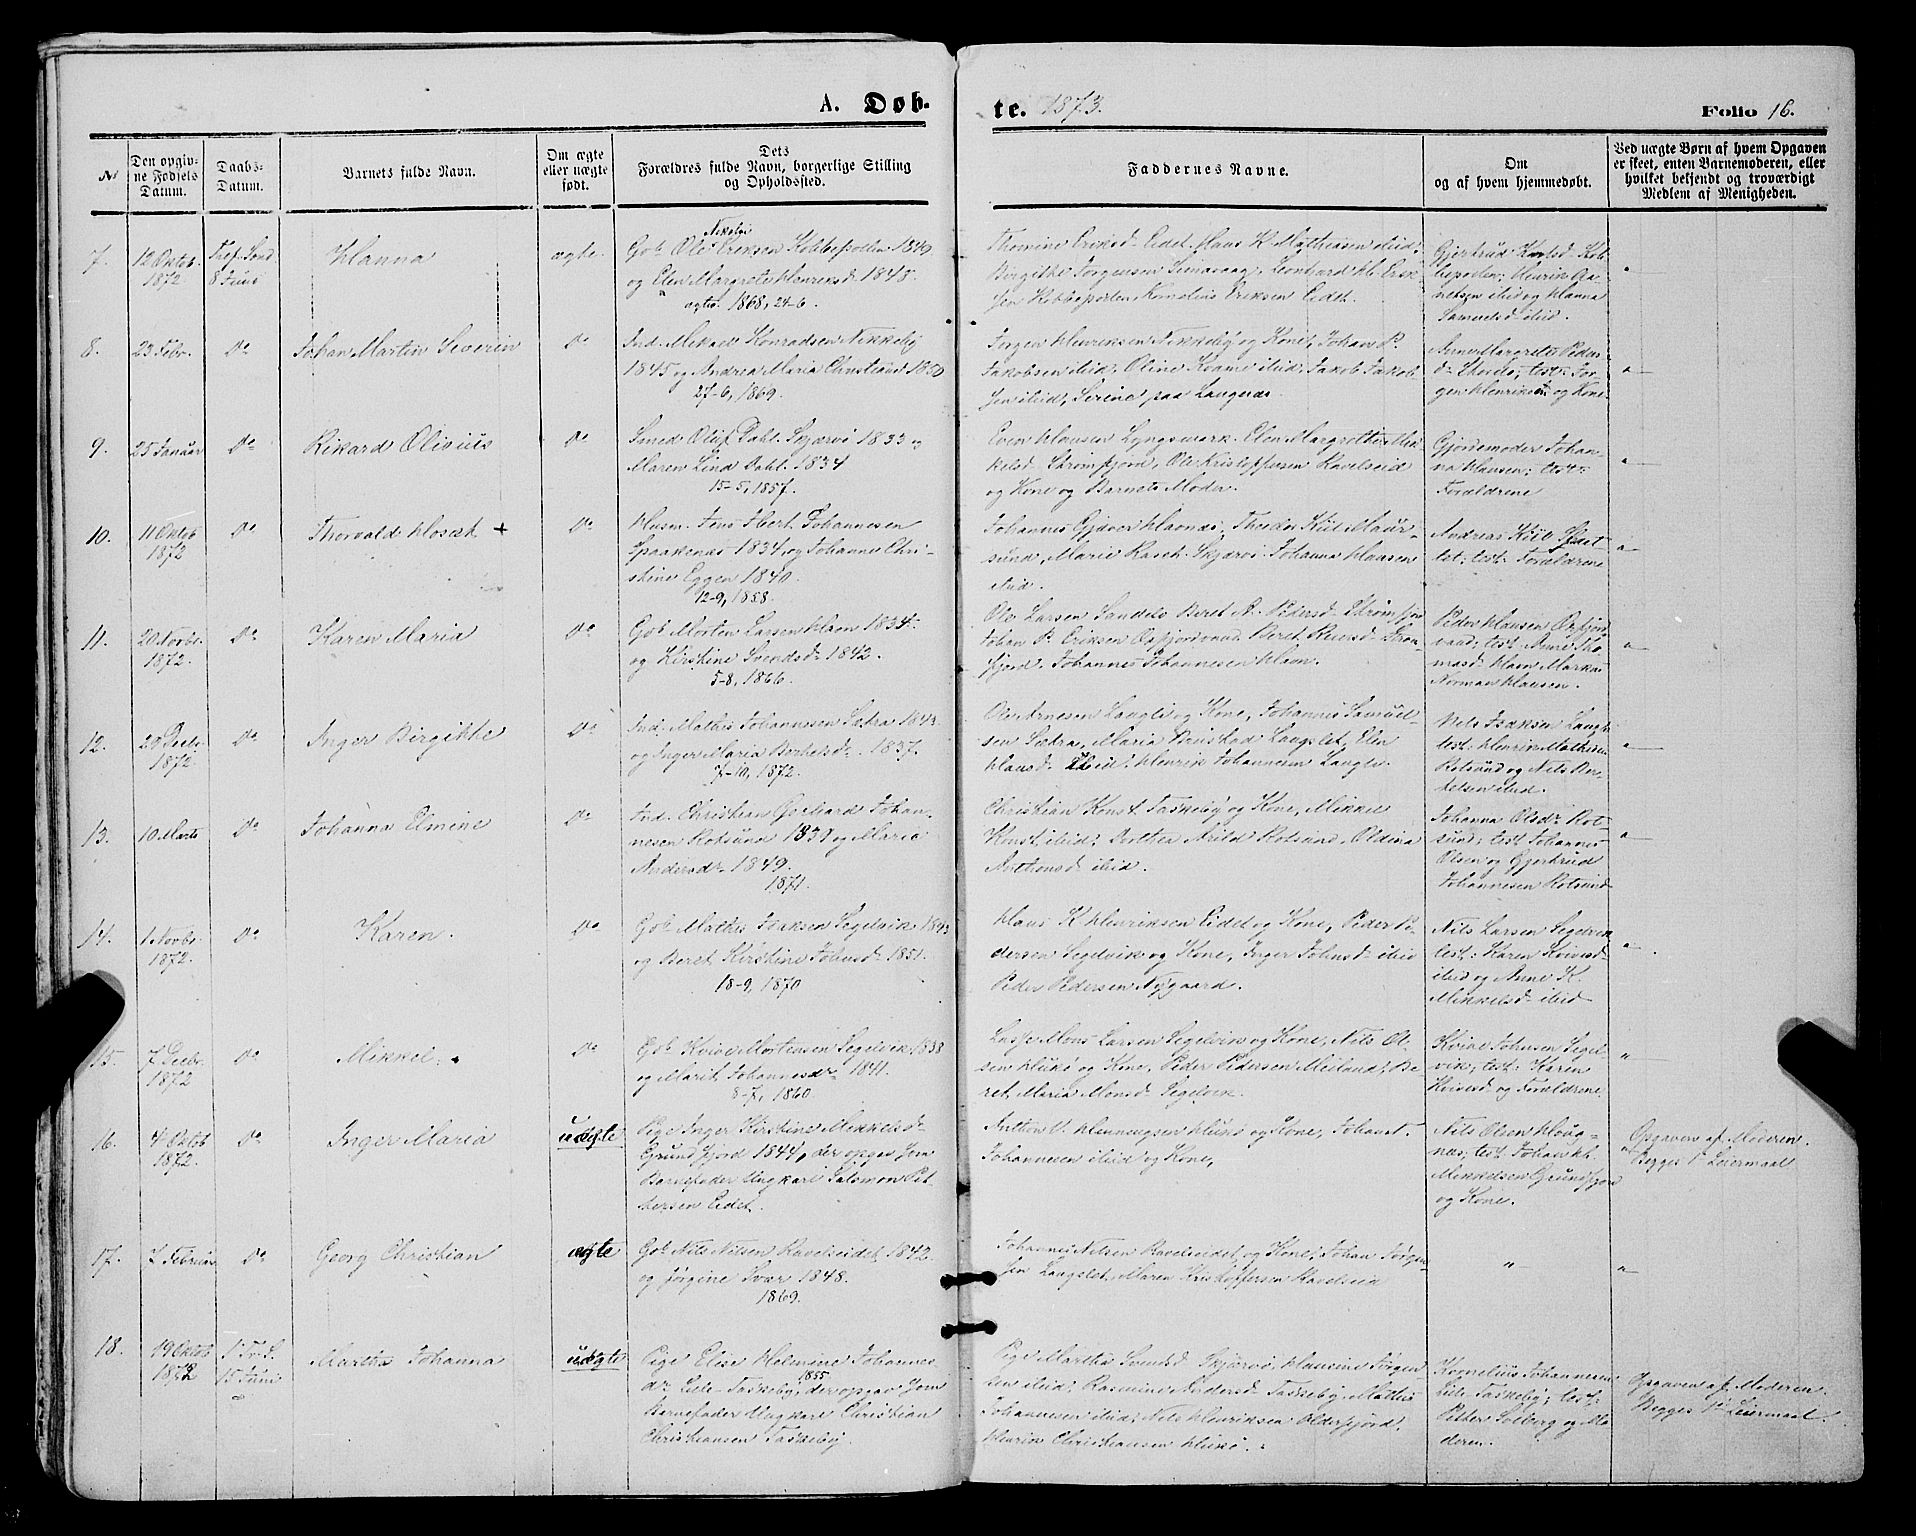 A. Døb-
te. 1873.
Folio 16.
No
Den opgiv-
ne Fødsels
Datum.
Daabs-
Datum.
Barnets fulde Navn.
Om ægte
eller uægte
født.
Dets
Forældres fulde Navn, borgerlige Stilling
og Opholdssted.
Faddernes Navne.
Om
og af hvem hjemmedøbt.
Ved uægte Børn af hvem Opgaven
er skeet, enten Barnemoderen, eller
hvilket bekjendt og troværdigt
Medlem af Menigheden.
7.
12 Oktob.
1872.
Tref. Sønd
8 Juni
Hanna
ægte.
Nikolai
Gbr. Ole Eriksen Kobbepollen 1840
og Elen Margrete Henriksdr. 1848.
1868, 24-6.
Thomine Eriksd. Eidet, Hans K. Mathiesen ibid.
Birgithe Jørgensen, Leonhard H. Erik-
sen Kobbepollen, Kornelius Eriksen Eidet.
Gjertrud Kob-
bepollen; Henrik
ibid og Hanna
Samuelsd. ibid.
"
8.
23 Febr.
Do
Johan Martin Severin
Do
Ind. Mikael Konradsen Nikkeby
1845 og Andrea Maria Christiansd. 1850
27-6, 1869.
Jørgen Henriksen Nikkeby og Kone, Johan P.
Jakobsen ibid, Oline Kvame ibid, Jakob Jakob-
sen ibid, Serine paa Laugnæs
Anne Margrete Peder-
test: Jør-
gen Henriksen og Kone
"
9.
25 Januar
Do
Rikard Olivius
Do
Smed Oluf Dahl Skjærvø 1833 og
Maren Lind Dahl 1834
15-5, 1857.
Even Hansen Lyngsmark. Elen Margrethe Mik-
kelsd. Strømfjord, Ole Kristoffersen Ravelseid
og Kone og Barnets Moder.
Gjordemoder Johan-
na Hansen; test:
Forældrene
"
10.
11 Oktob
1872
Do
Thorvald Hosæth +
Do
Husm. Jens Hert. Johannesen
Spaakenæs 1834 og Johanna Chri-
stine Eggen 1840.
12-9, 1858.
Johannes Gjæver Havnnæs, Theodor Kiil Maur-
sund, Marie Rasch Skjærvø, Johanna Hansen
ibid.
Andreas Kiil Slet-
tet; test: Forældrene
"
11.
20 Novbr.
1872.
Do
Karen Maria
Do
Gbr. Morten Larsen Havn 1834
og Kirstine Svendsdr. 1842.
5-8, 1866.
Ole Larsen Sandela Beret A. Pedersd. Strømfjord
Johan P. Eriksen Oxfjordvand, Beret Strøm-
fjord, Johannes Johannesen Havn.
Peder Hansen Oxfjord-
vand; test: Anne Tho-
masd. Havn Markus
Norman Hansen.
"
12.
29 Decbr.
1872.
Do
Inger Birgitte
Do
Ind. Mathis Johannesen Sætra 1843.
og Inger Maria Berthelsdr. 1837.
7-10, 1872.
Ole Arnesen Langli og Kone, Johannes Samuel-
sen Sætra, Maria Langslet, Elen
Hansd. ibid. Henrik Johannesen Langli.
Nils Isaksen Langli
test: Henrik Mathisen
Rotsund og Nils Ber-
telsen ibid.
"
13.
10 Marts
Do
Johanna Elmine
Do
Ind. Christian Gerhard Johan-
nesen Rotsund 1839 og Maria
Andersdr. 1849.
1871.
Christian Konst. Taskeby og Kone, Mikkel
Konst. ibid; Dorthea Arild Rotsund, Oldina
Anthonsd. ibid.
Johanna Olsdr. Rot-
sund; test Johannes
Olsen og Gjertrud
Johannesen Rotsund
"
14.
1 Novbr.
1872.
Do
Karen.
Do
Gbr. Mathis Isaksen Segelvik 1843
og Beret Kirstine Johnsdr. 1851.
18-9, 1870
Hans K. Henriksen Eidet og Kone, Peder Pe-
dersen Segelvik og Kone, Inger Johnsd. ibid
Peder Pedersen Nygaard.
Nils Larsen Segelvik
test: Karen Kvivesd.
ibid og Anne K.
Mikkelsd. ibid
"
15.
7 Decbr.
1872
Do
Mikkel.
Do
Gbr. Kvive Mortensen Segelvik 1838
og Marit Johannesdr. 1841.
8-7, 1860.
Lasse Mons Larsen Segelvik og Kone, Nils Ol-
sen Hukø og Kone, Peder Pedersen Meiland, Be-
ret Maria Monsd. Segelvik.
Kvive Johnsen Segel-
vik; test: Karen
Kvivesd og Forældrene
"
16.
4 Oktob
1872.
Do
Inger Maria
uægte
Pige Inger Kirstine Mikkelsdr.
Grundfjord 1844, der opgav som
Barnefader Ungkarl Salomon Pet-
tersen Eidet.
Anton U. Henningsen Hukø og Kone, Johan I.
Johannesen ibid og Kone,
Nils Olsen Haug-
næs; test. Johan H.
Mikkelsen Grundfjord
og Kone.
Opgaven af Moderen.
Begges 1te Leiermaal
17.
2 Februar
Do
Georg Christian
ægte
Gbr. Nils Nilsen Ravelseidet 1842.
og Jørgine Svar 1848.
1869.
Johannes Nilsen Ravelseidet og Kone, Johan Jørgen-
sen Langslet, Maren Kristoffersen Ravelseid
"
"
18.
19 Oktob
1872
1 Tr. S.
15 Juni
Martha Johanna
uægte
Pige Elise Helmine Johannes-
1855
dr. Lille-Taskeby, der opgav som
Barnefader Ungkarl Christian
Christiansen Taskeby
Pige Martha Svendsd. Skjærvø, Hansine Jørgen-
sen ibid, Rasmine Andersd. Taskeby, Mathis
Johannesen ibid; Nils Henriksen Olderfjord,
Henrik Christiansen Hukø.
Kornelius Johannesen
Lille Taskeby; test:
Petter Solberg og Mo-
deren.
Opgaven af Moderen.
Begges 1te Leiermaal.